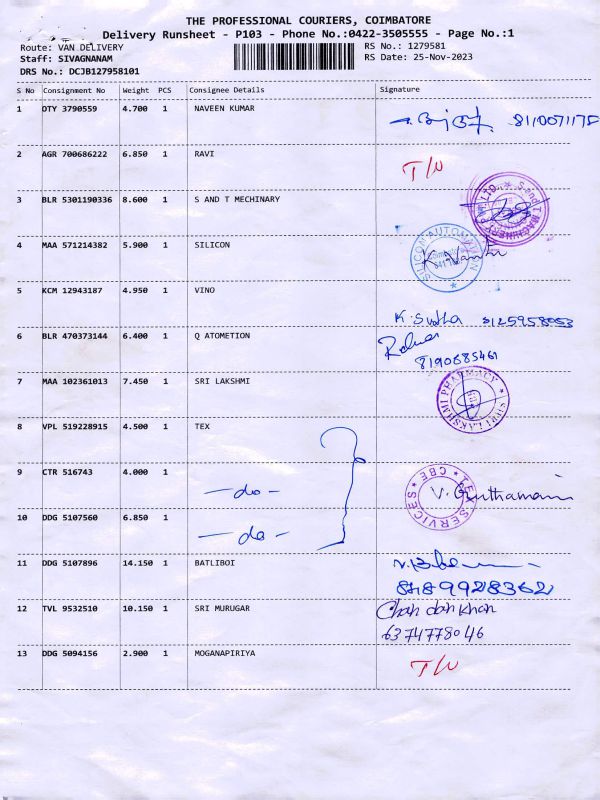 THE PROFESSIONAL COURIERS, COIMBATORE
Delivery Runsheet - P103 - Phone No.:0422-3505555 - Page No.:1
Route: VAN DELIVERY
RS No.: 1279581
Staff: SIVAGNANAM
RS Date: 25-Nov-2023
DRS No.: DCJB127958101
S No Consignment No Weight PCS Consignee Details Signature
1 OTY 3790559 4.700 1 NAVEEN KUMAR
8110071178
2 AGR 700686222 6.850 1 RAVI
3 BLR 5301190336 8.600 1 S AND T MECHINARY
4 MAA 571214382 5.900 1 SILICON
SILICON AUTOMATION
5 KCM 12943187 4.950 1 VINO
K. Sudha
6 BLR 470373144 6.400 1 Q ATOMETION
8190685461
7 MAA 102361013 7.450 1 SRI LAKSHMI
LAKSHMI PHARMACY
8 VPL 519228915 4.500 1 TEX
9 CTR 516743 4.000 1 —do—
TEX SERVICES CBE
10 DDG 5107560 6.850 1 —do—
11 DDG 5107896 14.150 1 BATLIBOI
8489928362
12 TVL 9532510 10.150 1 SRI MURUGAR Chan dan khan
6374778046
13 DDG 5094156 2.900 1 MOGANAPIRIYA